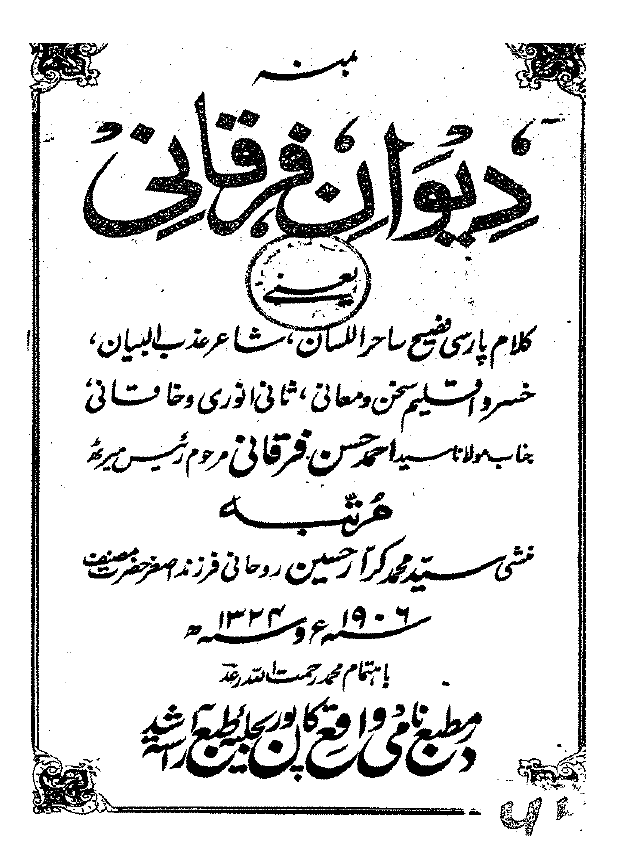 بمنہ
دیوانِ فرقانی
یعنے
کلام پارسی فصیح ساحر اللسان، شاعر عذب البیان،
خسرو اقلیم سخن و معانی، ثانی انوری و خاقانی
جناب مولانا سید احمد حسن فرقانی مرحوم رئیس میرٹھ
مرتبہ
منشی سید محمد کرار حسین روحانی فرزند اصغر حضرت مصنف
سنہ ۱۹۰۶ء و سنہ ۱۳۲۴ھ
باہتمام محمد رحمت اللہ رعد
در مطبع نامی واقع کانپور بحلیۂ طبع آراستہ شد